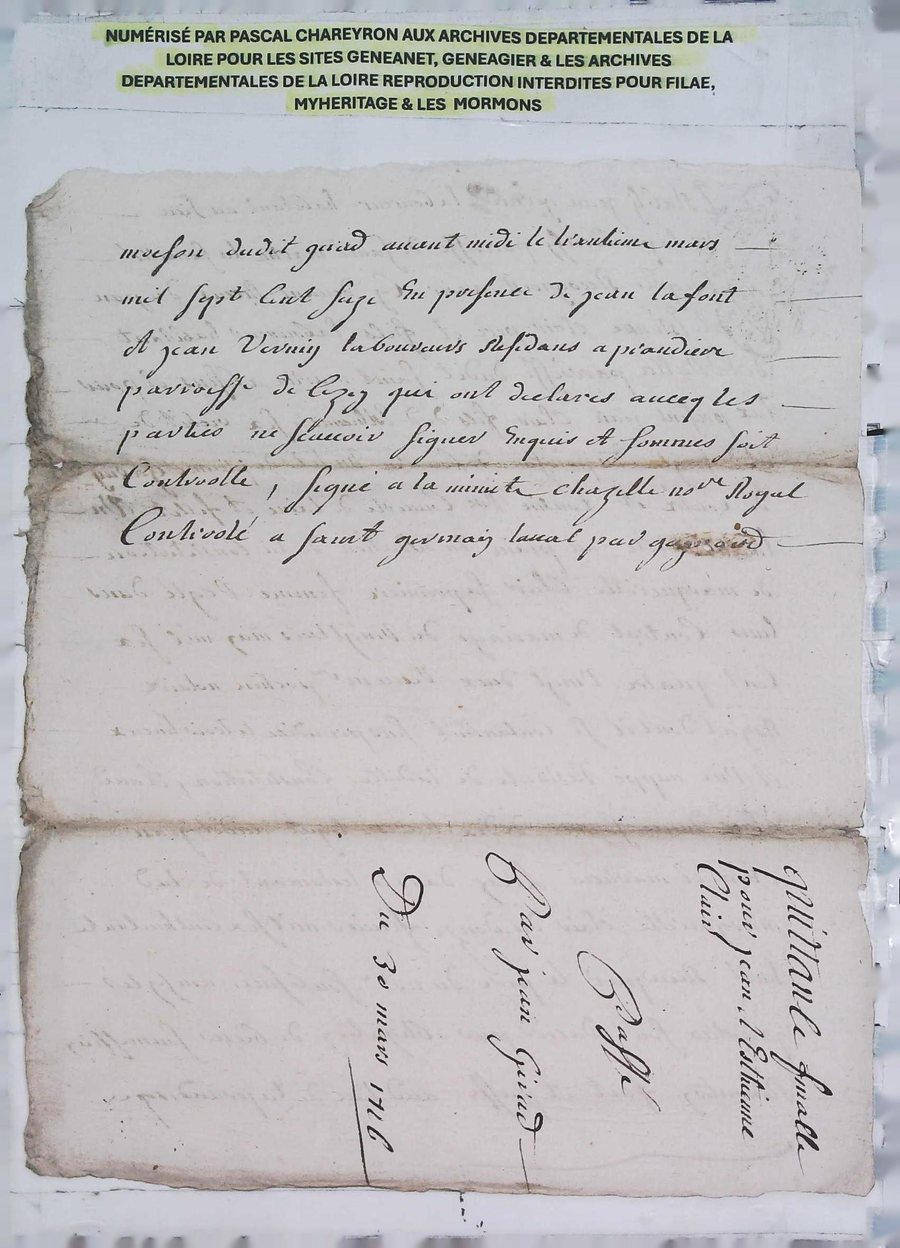 NUMÉRISÉ PAR PASCAL CHAREYRON AUX ARCHIVES DEPARTEMENTALES DE LA
LOIRE POUR LES SITES GENEANET, GENEAGIER & LES ARCHIVES
DEPARTEMENTALES DE LA LOIRE REPRODUCTION INTERDITES POUR FILAE,
MYHERITAGE & LES MORMONS
moeson dudit girad auant midi le trantieme mars
mil sept Cent seze En presence de jean lafont
Et jean Verniy laboureurs residans a
parroisse de Cezey qui ont declares aueeq les
parties ne scauoir signer Enquis Et sommes soit
Controolle, signé a la minute chazelle no.re Royal
Controlé a saint germain laual par
quittance finalle
pour jean Et Esthienne
Clair
Passé
Par jean Girad
Du 30 mars 1716